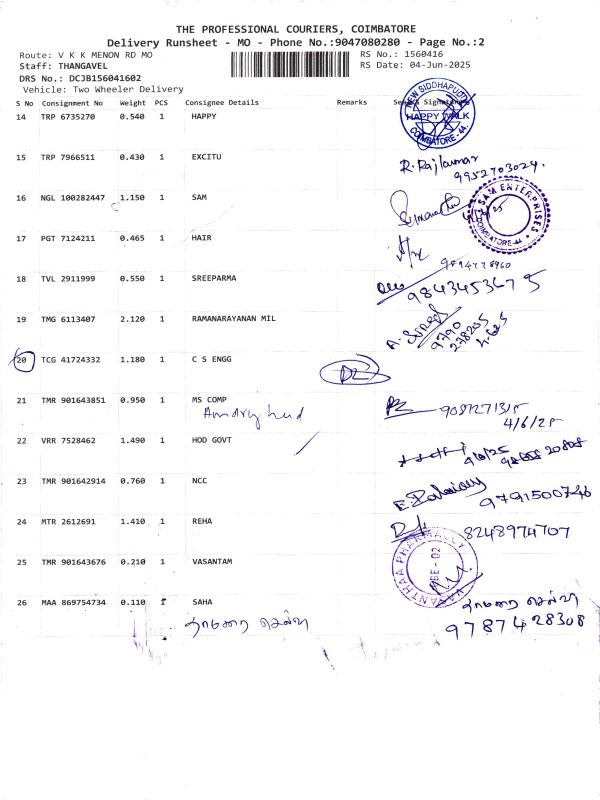 THE PROFESSIONAL COURIERS, COIMBATORE
Delivery Runsheet - MO - Phone No.:9047080280 - Page No.:2
Route: V K K MENON RD MO
RS No.: 1560416
Staff: THANGAVEL
RS Date: 04-Jun-2025
DRS No.: DCJB156041602
Vehicle: Two Wheeler Delivery
S No Consignment No Weight PCS Consignee Details Remarks
14 TRP 6735270 0.540 1 HAPPY
NEW SIDDHAPUDUR
HAPPY WALK
COIMBATORE-44
15 TRP 7966511 0.430 1 EXCITU
R. Rajkumar
9952703024.
16 NGL 100282447 1.150 1 SAM
SAM ENTERPRISES
COIMBATORE-44
17 PGT 7124211 0.465 1 HAIR
18 TVL 2911999 0.550 1 SREEPARMA
9843453675
19 TMG 6113407 2.120 1 RAMANARAYANAN MIL
9790
278205
20 TCG 41724332 1.180 1 C S ENGG
21 TMR 901643851 0.950 1 MS COMP
4/6/25
22 VRR 7528462 1.490 1 HOD GOVT
23 TMR 901642914 0.760 1 NCC
9791500746
24 MTR 2612691 1.410 1 REHA
8248974707
25 TMR 901643676 0.210 1 VASANTAM
VASANTHAA PHARMACY
26 MAA 869754734 0.110 1 SAHA
தாமரை செல்வி
தாமரை செல்வி
9787428308